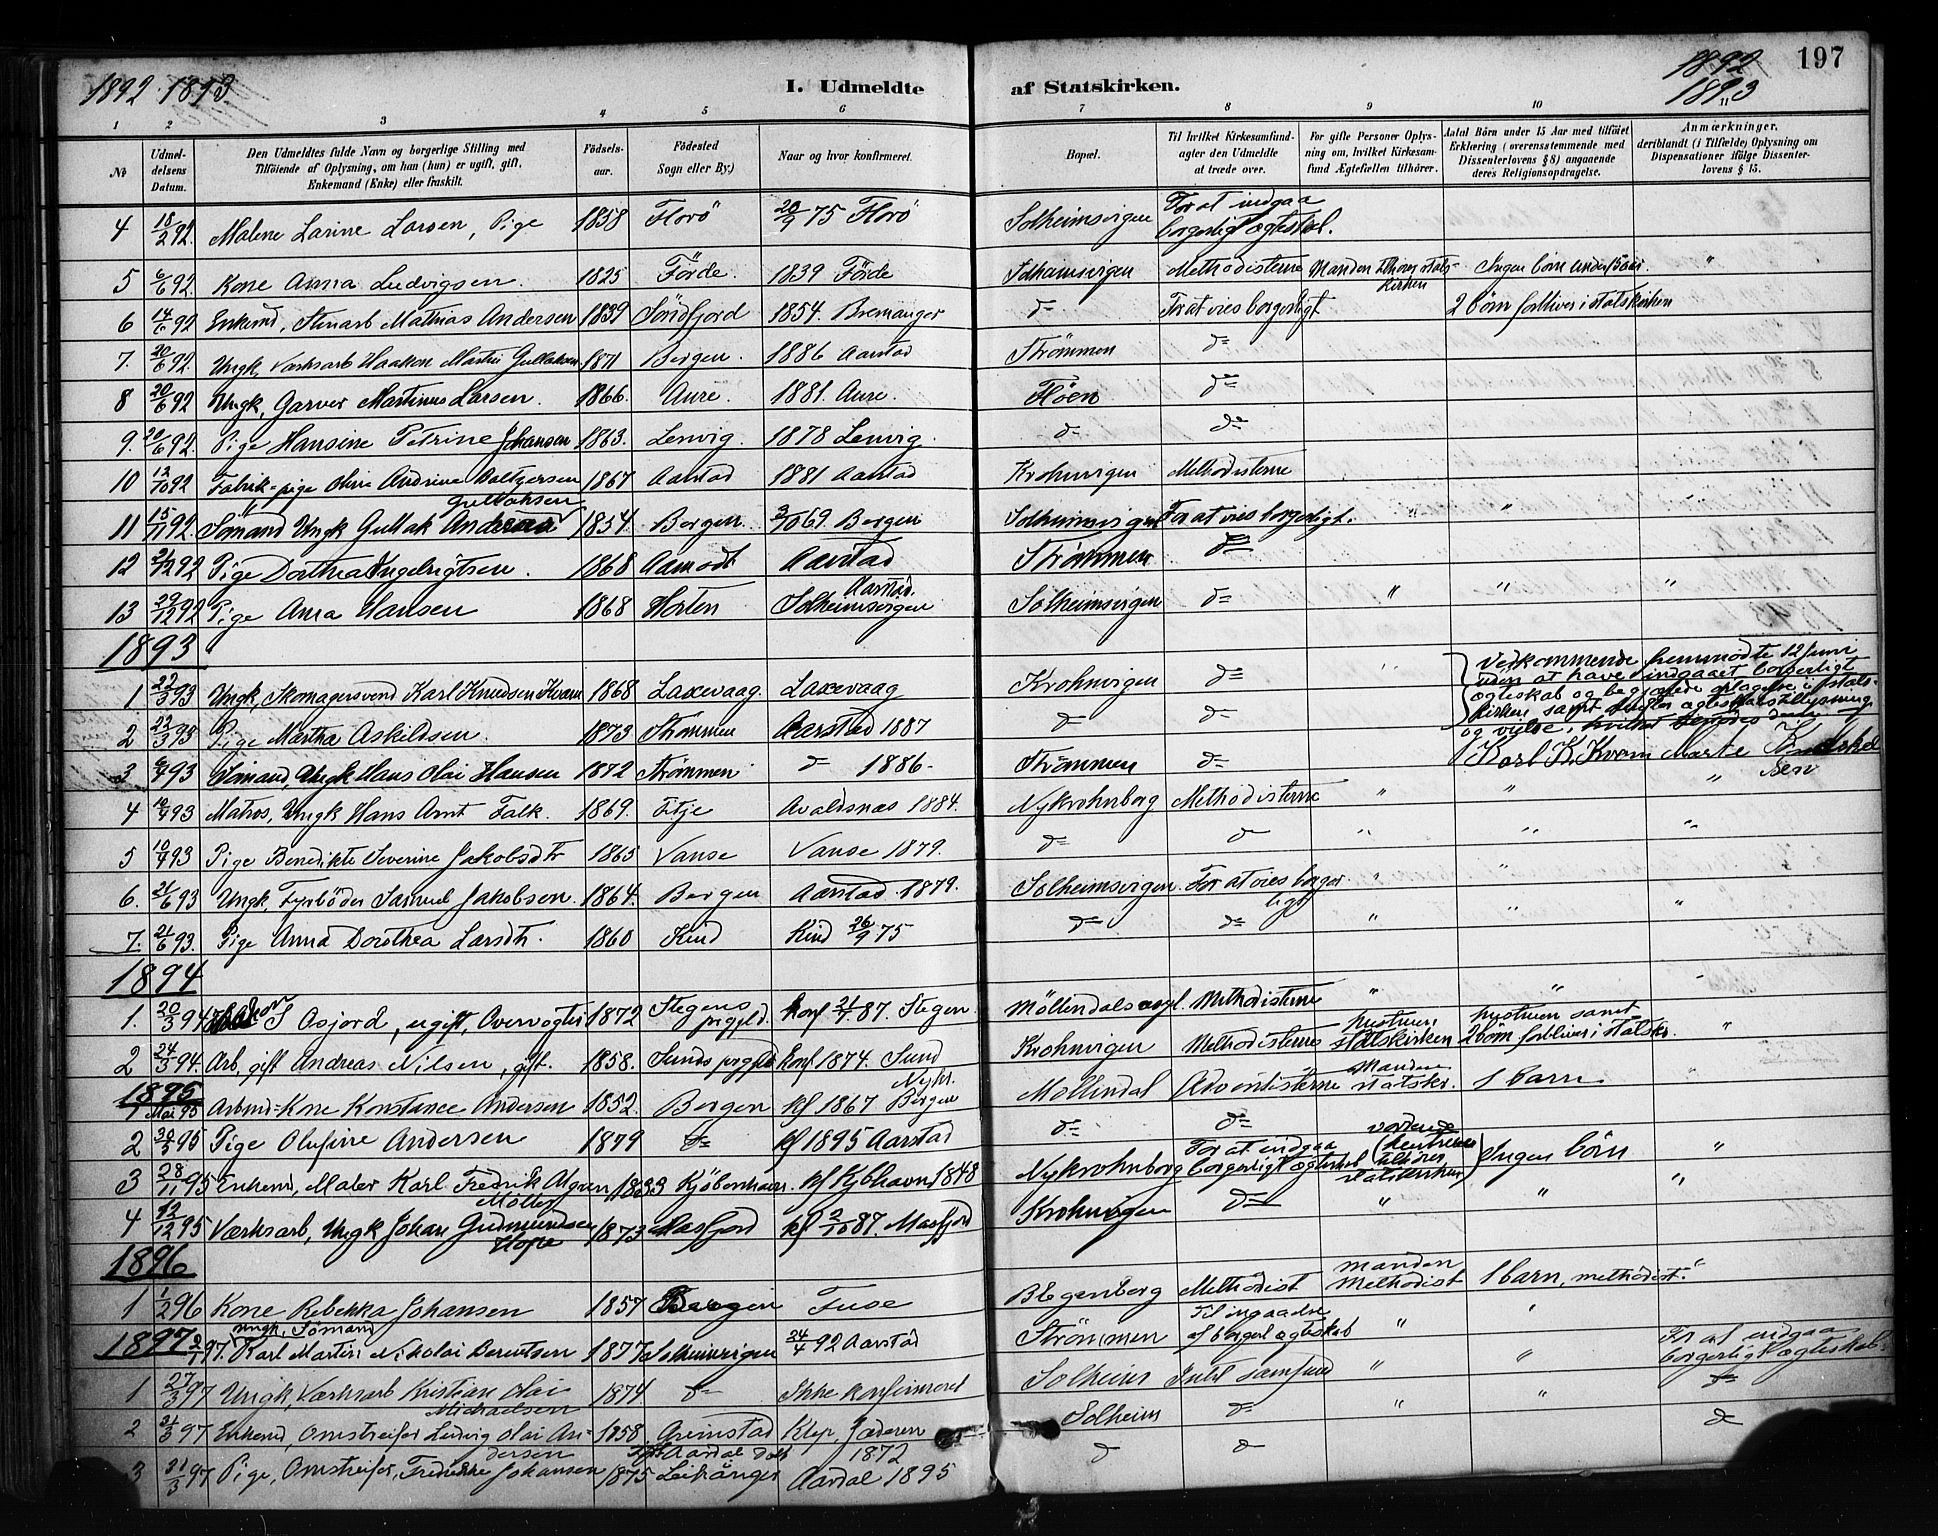 1892 1893
I. Udmeldte af Statskirken.
1892
1893
197
1 2 3 4 5 6 7 8 9 10 11
№
Udmeldelsens Datum.
Den Udmeldtes fulde Navn og borgerlige Stilling med Tilföiende af Oplysning, om han (hun) er ugift, gift, Enkemand (Enke) eller fraskilt.
Födselsaar.
Födested Sogn eller By.)
Naar og hvor konfirmeret.
Bopæl.
Til hvilket Kirkesamfund agter den Udmeldte at træde over.
For gifte Personer Oplysning om, hvilket Kirkesamfund Ægtefællen tilhörer.
Antal Börn under 15 Aar med tilföiet Erklæring (overensstemmende med Dissenterlovens § 8) angaaende deres Religionsopdragelse.
Anmærkninger, deriblandt (i Tilfælde) Oplysning om Dispensationer ifölge Dissenterlovens § 15.
4 18/2 92. Malene Larine Larsen, Pige 1858 Florö 20/9 75 Florö Solheimsvigen For at indgaa borgerligt ægteskab.
5 6/6 92. Kone Anna Ludvigsen. 1825 Förde. 1839 Förde Solheimsvigen Methodisterne Manden tilhörer statskirken Ingen börn under 15 aar. "
6 14/6 92 Enkemd, Stenarb Mathias Andersen 1839 Söndfjord 1854. Bremanger do For at vies borgerligt 2 börn forbliver i statskirken
7. 20/6 92. Ungk, Værksarb Haakon Martin Gullaksen 1871 Bergen. 1886 Aarstad Strömmen do
8 20/6 92 Ungk, Garver Martinus Larsen. 1866. Aure. 1881. Aure. Flöen do
9. 20/6 92. Pige Hansine Petrine Johansen 1863. Lenvig. 1878 Lenvig. do do
10 12/10 92 Fabrik-pige Oline Andrine 1867 Aarstad 1881 Aarstad Krohnvigen Methodisterne
11 15/11 92. Sömand Ungk Gullak Gullaksen 1854. Bergen. 3/10 69 Bergen Solheimsvigen For at vies borgerligt. "
12 2/12 92 Pige Dorthea Ingebrigtsen. 1868 Aamodt Aarstad Strömmen do
13 29/12 92 Pige Anna Hansen 1868 Horten Aarstad. Solheimsvigen Solheimsvigen do " " "
1893
1 22/3 93 Ungk, Skomagersvend Karl Knudsen Kvam 1868 Laxevaag. Laxevaag Krohnvigen do " Vedkommende fremmödte 12 Juni uden at have indgaaet borgerligt ægteskab og begjærede optagelse i statskirken samt
og vielse,
2 22/3 93 Pige Martha Askildsen. 1873 Strömmen Aarstad 1887 do do Karl K. Kvam Marte
3 6/7 93 Sömand, Ungk Hans Olai Hansen 1872 Strömmen do 1886. Strömmen do "
4 10/7 93 Matros, Ungk Hans Arnt Falk. 1869. Fitje Avaldsnæs 1884. Ny Krohnborg Methodisterne " "
5 10/7 93 Pige Benedikte Severine Jakobsdtr 1865 Vanse Vanse 1879. do do " " "
6. 21/6 93 Ungk, Fyrböder Samuel Jakobsen. 1864. Bergen Aarstad. 1879. Solheimsvigen. For at vies borgerligt " "
7. 21/6 93. Pige Anna Dorothea Larsdtr. 1860 Kind Kind 26/9 75 do do " " "
1894
1. 20/3 94 S Osjord, ugift, Overvogter 1872 Stegens prgjld. konf 21/7 87. Stegen Möllendalsvgt. Methodisterne " " "
2 24/3 94. Arb, gift Andreas Nilsen, gift. 1858. Sunds prgjld konf 1874. Sund Krohnvigen Methodisternes hustruen statskirken hustruen samt 2 börn forbliver i statsk. "
1895
1 Mai 95 Arbmd-Kone Konstance Andersen 1852. Bergen kf 1867 Nykr. Bergen Möllendal Adventisterne Manden statskr. 1 barn "
2 30/5 95 Pige Olufine Andersen 1879 do kf 1895 Aarstad do do
3 28/11 95 Enkemd, Maler Karl Fredrik Möller 1833 Kjöbenhavn. kf Kjbhavn 1848 Nykrohnborg For at indgaa borgerligt ægteskab (vordende hustruen tilhörer statskirken) Ingen börn "
4 12/12 95 Værksarb, Ungk Johan Gudmundsen Hope 1873 Masfjord kf 2/10 87. Masfjord Krohnvigen do " " "
1896
1 1/2 96 Kone Rebekka Johansen 1857 Bergen Fuse Blegenberg Methodist manden Methodist 1 barn, methodist. "
1897
2/1 97. ungk, Sömand Karl Martin Nikolai Berntsen 1877 Solheimsvigen 24/4 92 Aarstad Strömmen Til ingaaelse af borgerl ægteskab " "
1 27/3 97 Ungk, Værksarb Kristian Olai Michaelsen 1874 do Ikke konfirmeret Solheim Intet samfund " " For at indgaa borgerligt ægteskab.
2 31/3 97 Enkemd, Omstreifer Ludvig Olai Andersen 1858 Grimstad Klep, Jæderen 1872 Solheim do " " do
3 31/3 97 Pige, Omstreifer, Fredrikke Johansen 1875 Leikanger Aardal 1895 do do do